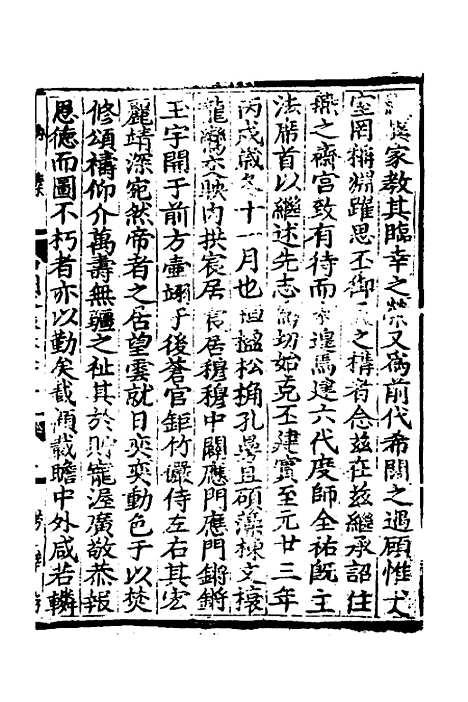 家教其臨幸之榮又為前代希闊之遇顧惟丈
室罔稱淵躍思丕御之構者念兹在兹繼承詔住
之齋宫致有待而遑焉逮六代度師全祐既主
法席首以繼述先志始克丕建實至元廿三年
丙戌歲冬十一月也楹松桷孔曼且碩藻棟文榱
龍鸞交映内拱宸居宸居穆穆中闢應門應門鏘鏘
玉宇開于前方壺翊于後蒼官鉅竹儼侍左右其宏
麗靖深宛然帝者之居望雲就日奕奕動色于以焚
修頌禱仰介萬壽無疆之祉其於貯寵渥廣敬恭報
恩德而圖不朽者亦以勤矣載顒載瞻中外咸若轔